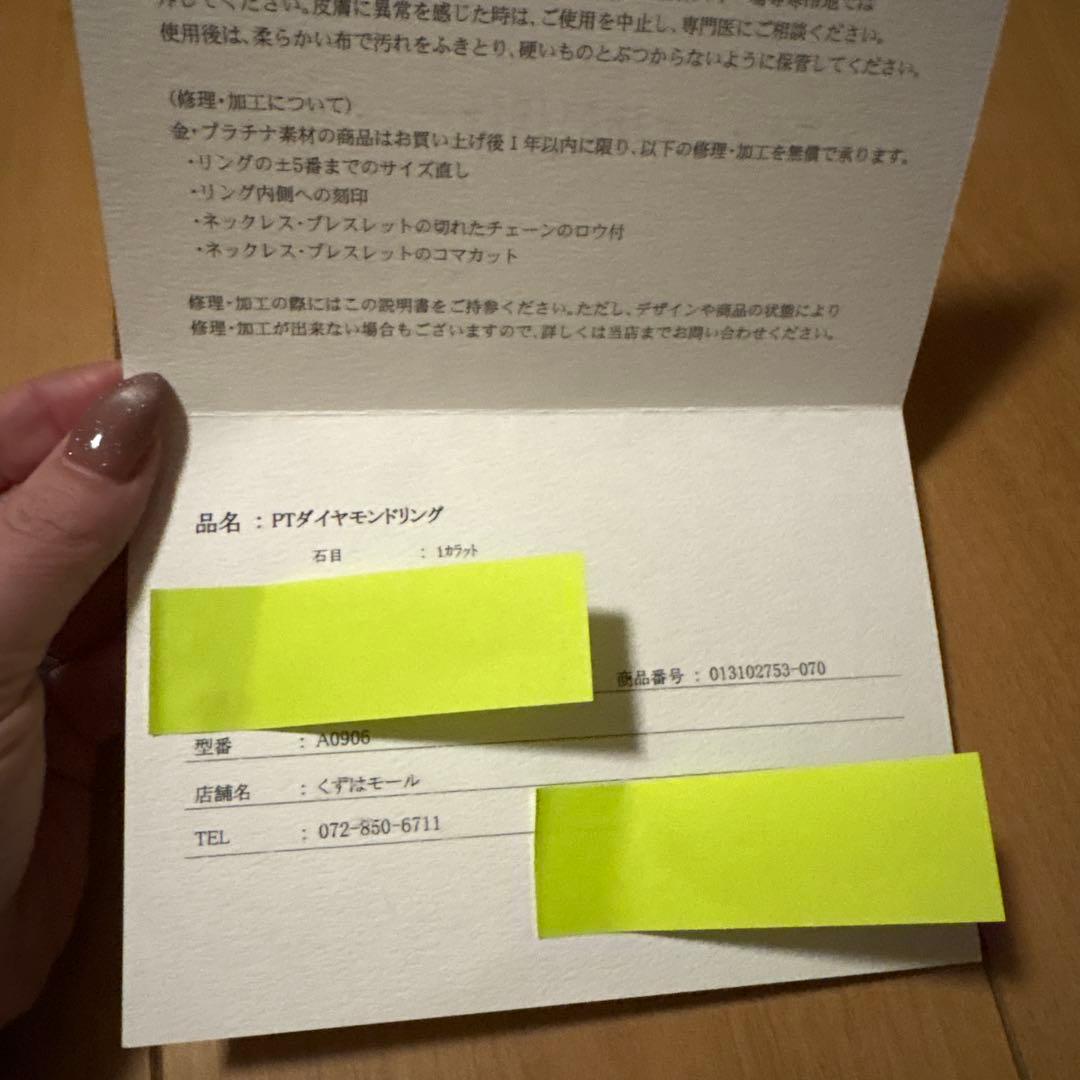 してください。皮膚に異常を感じた時は、ご使用を中止し、専門医にご相談ください。
使用後は、柔らかい布で汚れをふきとり、硬いものとぶつからないように保管してください。
(修理・加工について)
金・プラチナ素材の商品はお買い上げ後1年以内に限り、以下の修理・加工を無償で承ります。
・リングの±5番までのサイズ直し
・リング内側への刻印
・ネックレス・ブレスレットの切れたチェーンのロウ付
・ネックレス・ブレスレットのコマカット
修理・加工の際にはこの説明書をご持参ください。ただし、デザインや商品の状態により
修理・加工が出来ない場合もございますので、詳しくは当店までお問い合わせください。
品名 : PTダイヤモンドリング
石目 : 1カラット
商品番号 : 013102753-070
型番 : A0906
店舗名 : くずはモール
TEL : 072-850-6711